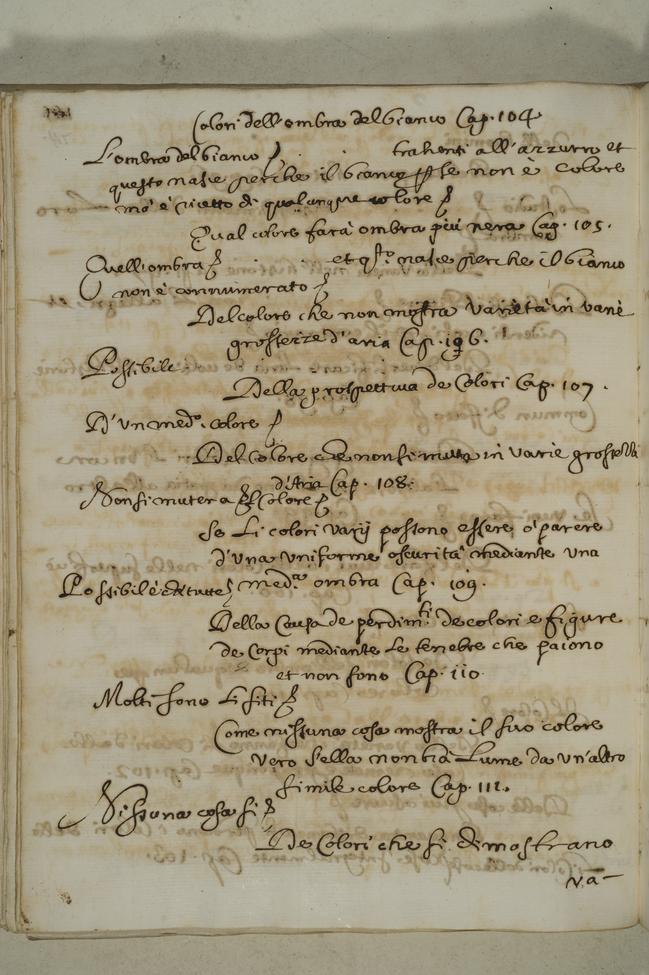 Colori dell'ombra del bianco Cap. 104
L'ombra del bianco trahenti all'azzurro et
questo nasce perche il bianco per se non è colore
mà è ricetto di qualunque colore
Qual colore farà ombra più nera Cap. 105.
Quell'ombra et qsto nasce perche il bianco
non è connumerato
Del colore che non mostra varietà in varie
grossezze d'aria Cap. 106.
Possibile
Della prospettiva de Colori Cap. 107.
D'un medo. colore
Del Colore che non si muta in varie grossezze
d'Aria Cap. 108.
Non si muterà il Colore
Se Li colori varij possono essere, ò parere
d'una uniforme oscurità mediante una
Possibile è che tutte
meda ombra Cap. 109.
Della Causa de perdimti de colori e figure
de Corpi mediante Le tenebre che paiono
et non sono Cap. 110
Molti sono Li siti
Come nissuna cosa mostra il suo colore
vero s'ella non hà Lume da un'altro
simile colore Cap. 111.
Nissuna cosa si
De Colori che si dimostrano
va-